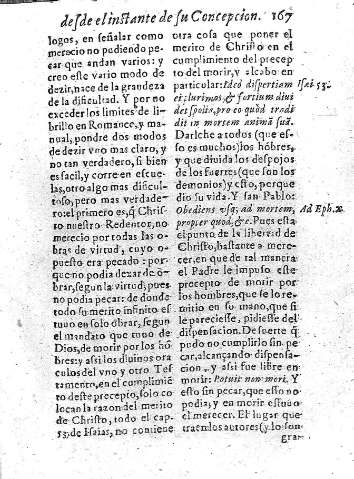 desde el instante de su Concepcion. 167
logos, en señalar como
merecio no pudiendo pe-
car que andan varios: y
creo este vario modo de
dezir, nace de la grandeza
de la dificultad. Y por no
exceder los limites de li-
brillo en Romance, y ma-
nual, pondre dos modos
de dezir vno mas claro, y
no tan verdadero, si bien
es facil, y corre en escue-
las, otro algo mas dificul-
toso, pero mas verdade-
ro: el primero es, q̃ Chri-
sto nuestro Redentor, no
merecio por todas las o-
bras de virtud, cuyo o-
puesto era pecado: por-
que no podia dezar de o-
brar, segun la virtud; pues
no podia pecar: de donde
todo su merito infinito es
tuuo en solo obrar, segun
el mandato que tuuo de
Dios, de morir por los hõ-
bres: y assi los diuinos ora
culos del vno y otro Tes-
tamento, en el cumplimiẽ
to deste precepto, solo co
locan la razon del merito
de Christo, todo el cap.
53. de Isaias, no contiene
otra cosa que poner el
merito de Christo en el
cumplimiento del precep
to del morir, y alcabo en
particular: Ideò dispertiam
ei plurimos, & fortium diui
det spolia, pro eo quòd tradi
dit in mortem animã suã.
Darlehe à todos (que es-
so es muchos) los hõbres,
y que diuida los despojos
de los fuertes (que son los
demonios) y esto, porque
dio su vida. Y san Pablo:
Obediens vsq; ad mortem,
propter quod, &c. Pues esta
el punto de la libertad de
Christo, bastante a mere-
cer, en que de tal manera
el Padre le impuso este
precepto de morir por
los hombres, que se lo re-
mitio en su mano, que si
le pareciesse, pidiesse del
dispensacion. De suerte q̃
pudo no cumplirlo sin pe
car, alcançando dispensa-
cion. y assi fue libre en
morir: Potuit non mori. Y
esto sin pecar, que esto no
podia, y en morir estuuo
el merecer. El lugar que
traen los autores (y lo son
gran-
Isai 53.
Ad Eph. 2.